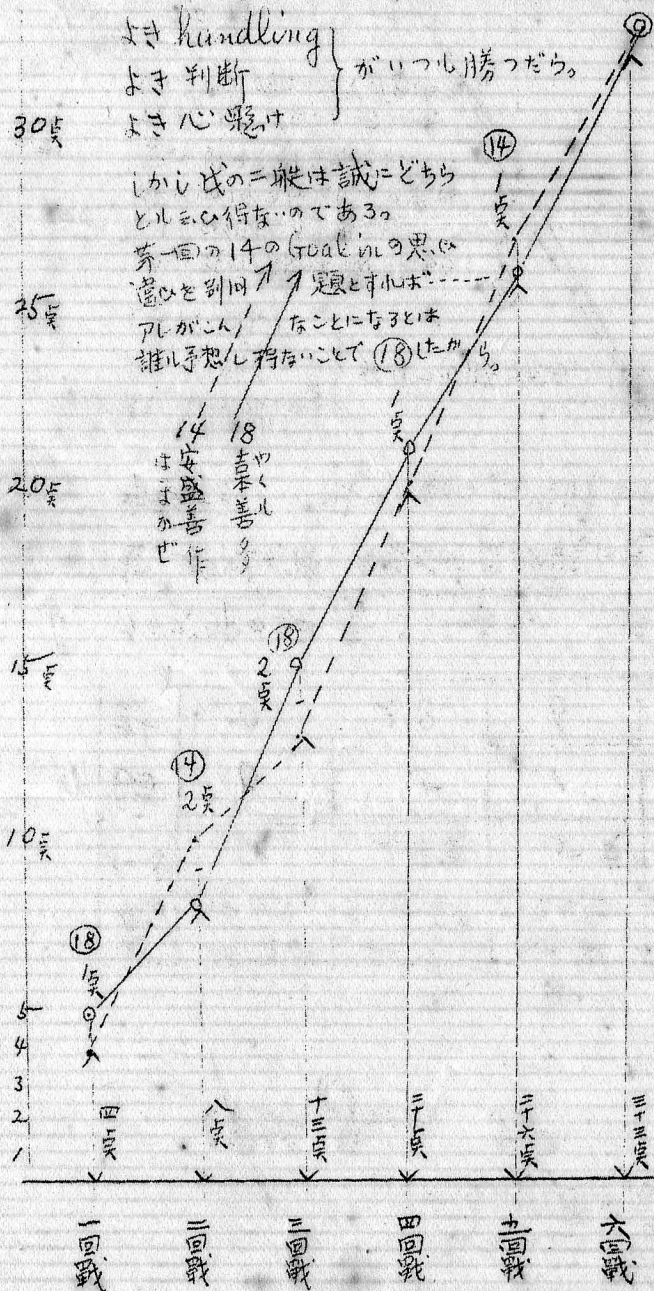 よき handling
よき 判断
よき 心懸け
がいつも勝つだら。
しかし此の二艇は誠にどちら
とも云ひ得ないのである。
第一回の14のGoal inの思ひ
違ひを別問題とすれば……
アレがこんなことになるとは
誰も予想し得ないことでしたから。
14 安盛善作
はまかぜ
18 吉本善多
やくも
30点
25点
20点
15点
10点
5
4
3
2
1
⑱
1点
⑭
2点
⑱
2点
⑱
1点
⑭
1点
四点
八点
十三点
二十点
二十六点
三十三点
一回戰
二回戰
三回戰
四回戰
五回戰
六回戰